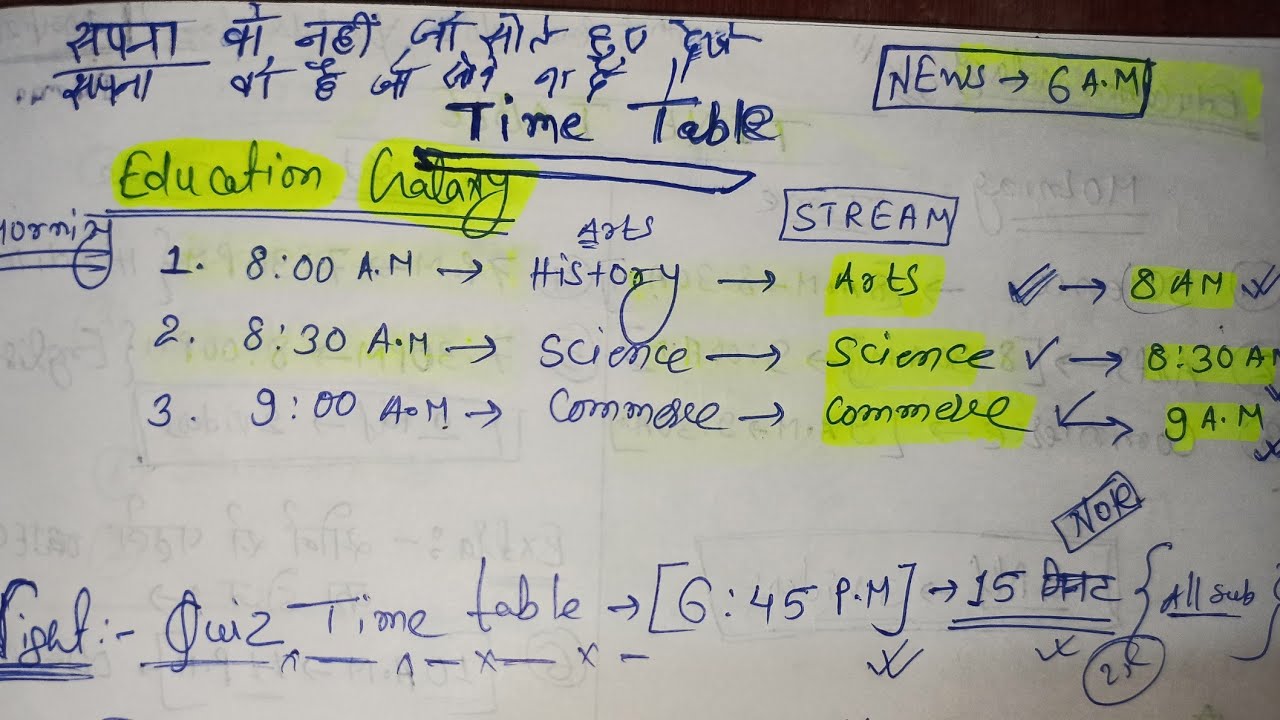 सपना वो नहीं जो सोते हुए देखे
सपना वो है जो सोने ना दें
NEWS → 6 A.M
Time Table
Education Galaxy
STREAM
Morning
Arts
1. 8:00 A.M → History → Arts → 8 AM
2. 8:30 A.M → Science → Science → 8:30 AM
3. 9:00 A.M → Commerce → Commerce → 9 A.M
Night:- Quiz Time table → [6:45 P.M] → 15 मिनट { All Sub }